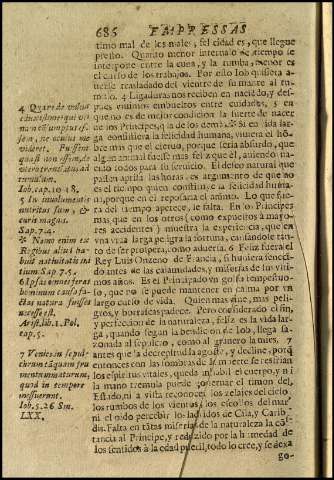 686 EMPRESSAS
timo mal de los males, felicidad es, que llegue
presto. Quanto menor intervalo de tiempo se
interpone entre la cuna, y la tumba, menor es
el curso de los trabajos. Por esso Iob quisiera a-
verse trasladado del vientre de su madre al tu-
mulo. 4 Ligaduras nos reciben en naciẽdo, y des-
pues vivimos embueltos entre cuidados, 5 en
que no es de mejor condicion la suerte de nacer
de los Principes, que la de los demàs. * Si en vida lar-
ga consistiera la felicidad humana, viviera el hõ-
bre mas que el ciervo, porque seria absurdo, que
algun animal fuesse mas feliz que èl, aviendo na-
cido todos para su servicio. El deseo natural que
passen aprissa las horas, es argumento de que no
es el tiempo quien constituye la felicidad huma-
na, porque en èl reposaria el animo. Lo que fue-
ra del tiempo apetece, le falta. En los Principes
mas que en los otros (como expuestos à mayo-
res accidentes) muestra la experiencia, que en
una vida larga peligra la fortuna, cansandose tan-
to de ser prospera, como adversa. 6 Feliz fuera el
Rey Luis Onzeno de Francia, si huviera feneci-
do antes de las calamidades, y miserias de sus ulti-
mos años. Es el Principado un golfo tempestuo-
so, que no se puede mantener en calma por un
largo curso de vida. Quien mas vive, mas peli-
gros, y borrascas padece. Pero considerado el fin,
y perfeccion de la naturaleza, feliz es la vida lar-
ga, quando segun la bendicion de Iob, llega sa-
zonada al sepulcro, como al granero la mies, 7
antes que la decrepitud la agoste, y decline, porq̃
entonces con las sombras de la muerte se resfrian
los espiritus vitales, queda inhabil el cuerpo, y ni
la mano tremula puede governar el timon del
Estado, ni la vista reconocer los zelages del cielo,
los rumbos de los vientos, los escollos del mar,
ni el oido percibir los ladridos de Cila, y Carib-
dis. Falta en tãtas miserias de la naturaleza la cõs-
tancia al Principe, y reducido por la humedad de
los sentidos à la edad pueril, todo lo cree, y se dexa
go-
4 Quare de vulva
eduxisti me: qui uti-
nam consumptus es-
sem, ne oculus me
videret. Fuissem
quasi non essem, de
utero translatus ad
tumulum.
Iob. cap. 10. 18.
5 In involumentis
nutritus sum, &
curis magnis.
Sap. 7. 4.
* Nemo enim ex
Regibus aliud ha-
buit nativitatis ini-
tium Sap. 7. 5.
6
Arist. lib. 1. Pol.
cap. 5.
7 Venies in sepul-
chrum
quod in tempore
messuerunt.
Iob. 5. 26 Sm.
LXX.